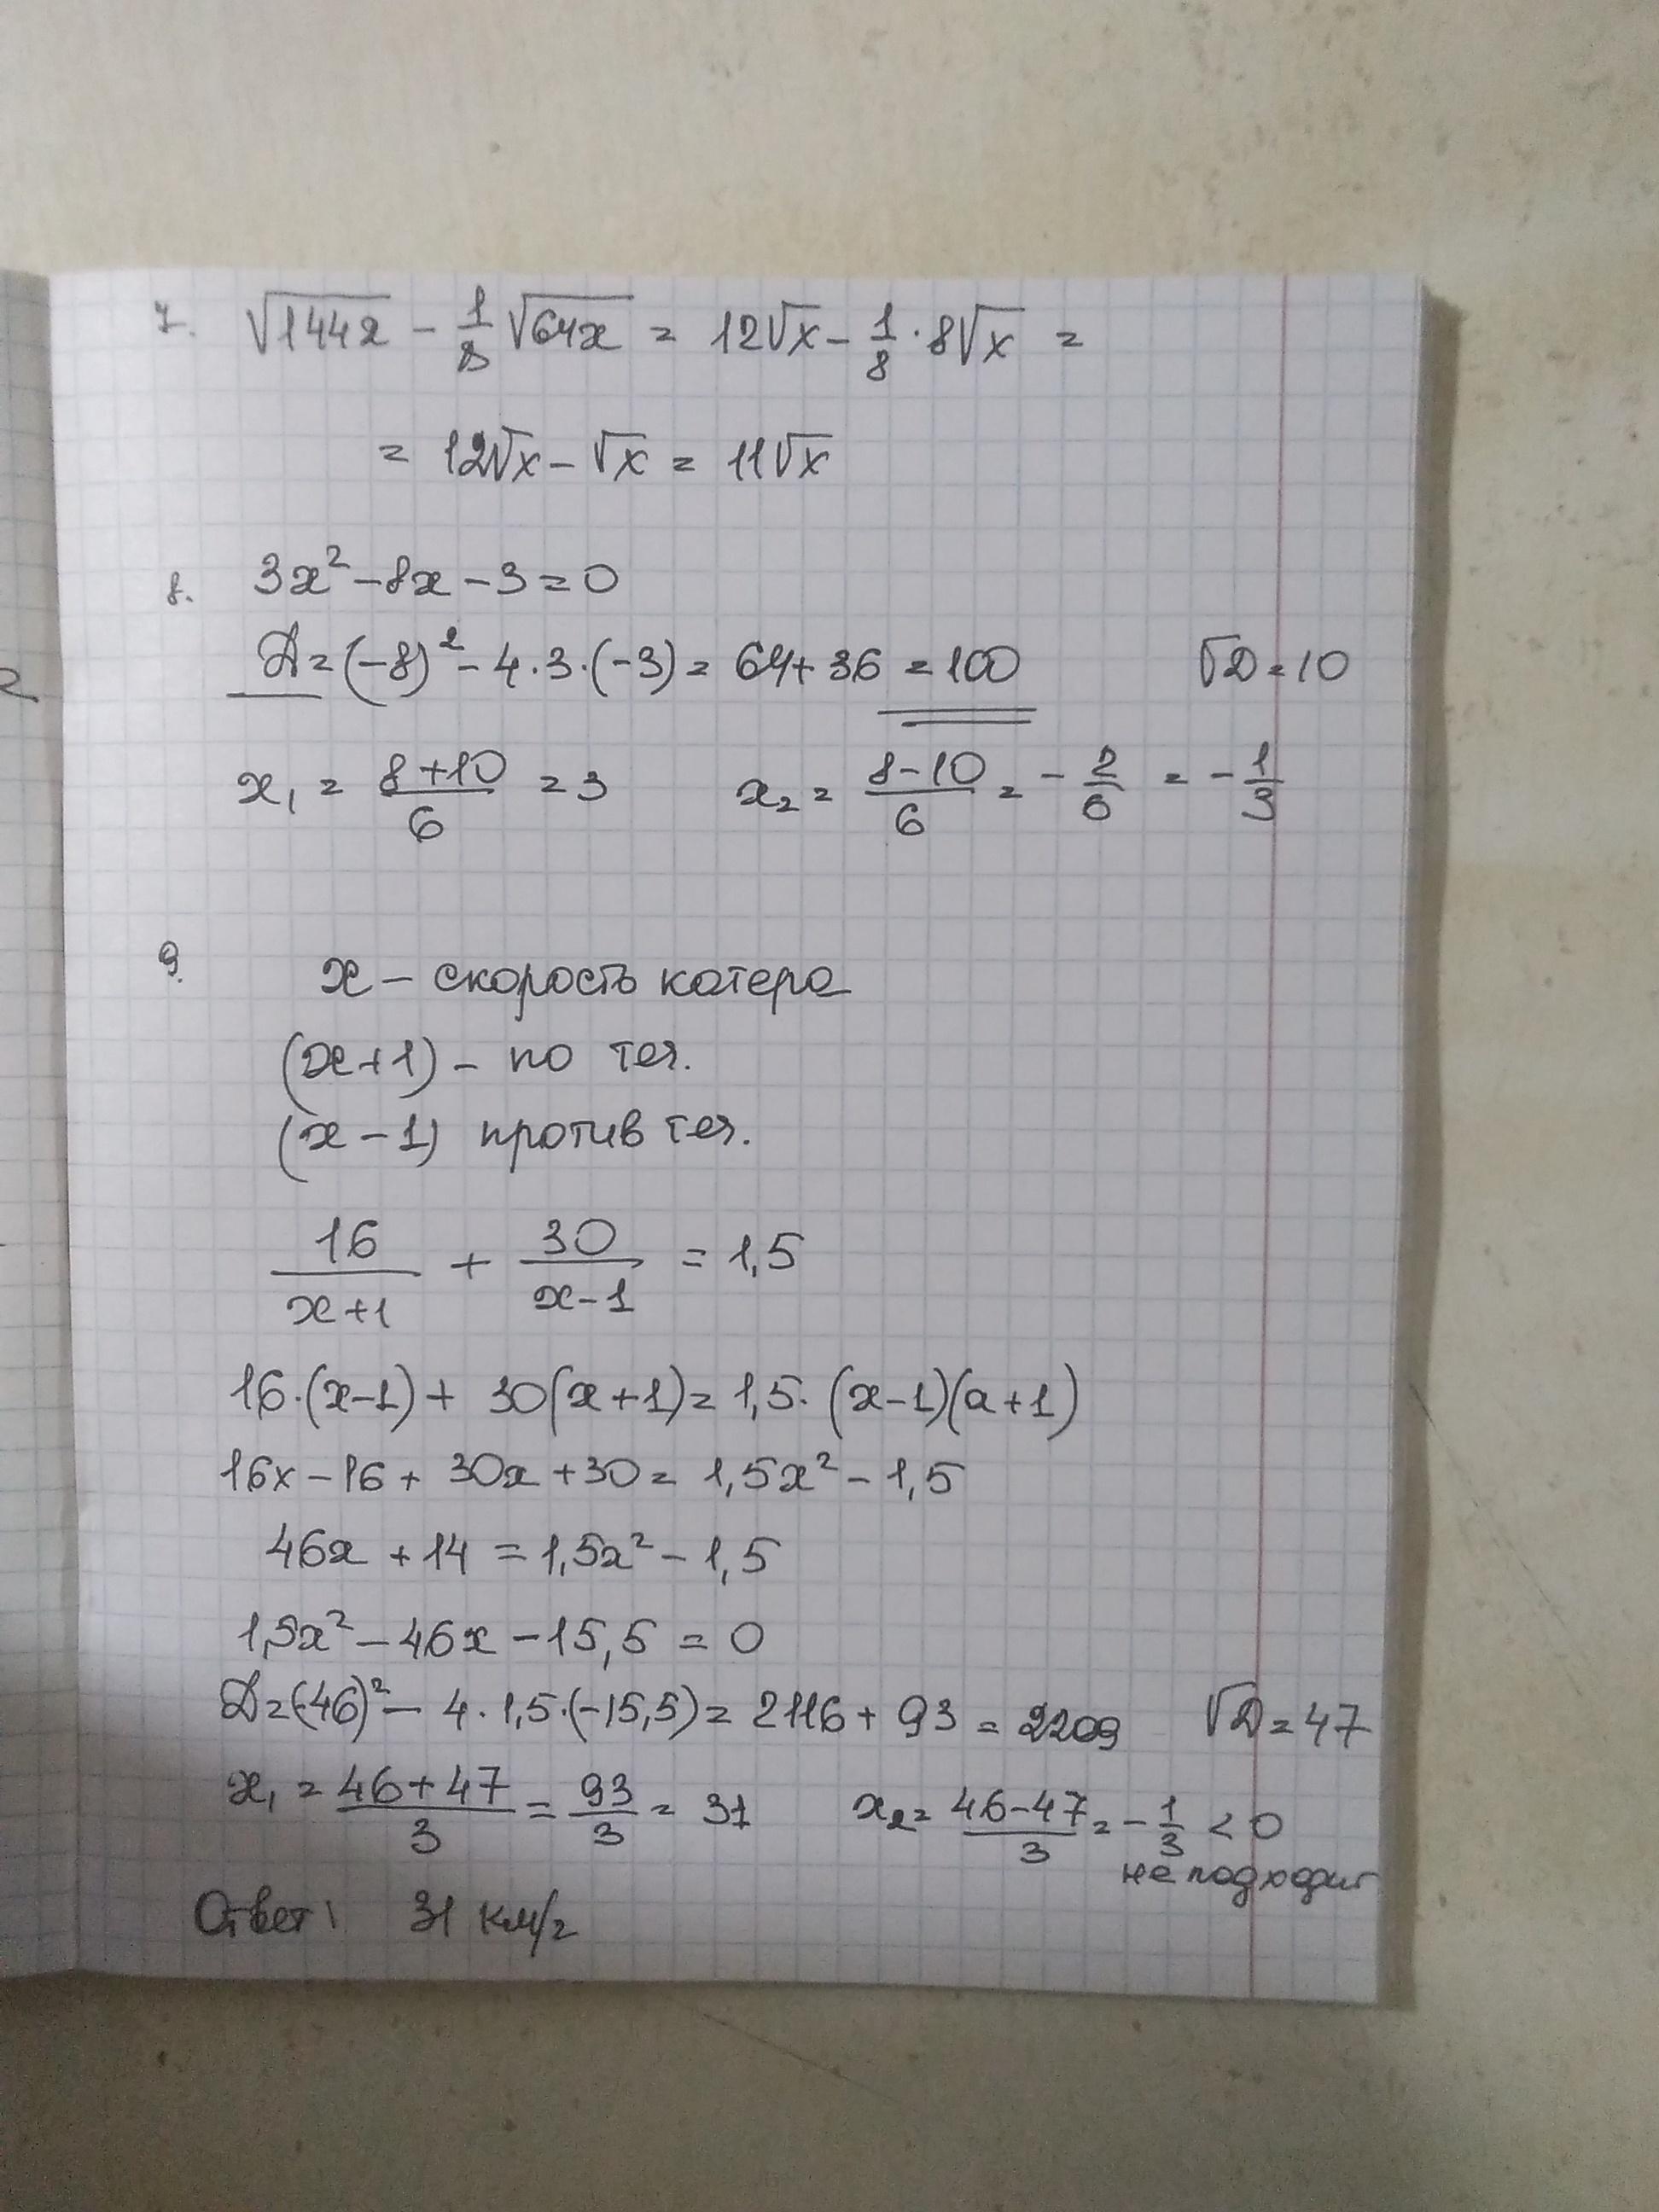 7. √144x - 1/8 √64x = 12√x - 1/8 · 8√x =
= 12√x - √x = 11√x
8. 3x² - 8x - 3 = 0
D = (-8)² - 4·3·(-3) = 64 + 36 = 100 √D = 10
x₁ = (8+10)/6 = 3 x₂ = (8-10)/6 = - 2/6 = - 1/3
9. x - скорость катера
(x+1) - по теч.
(x-1) против теч.
16/(x+1) + 30/(x-1) = 1,5
16·(x-1) + 30(x+1) = 1,5·(x-1)(x+1)
16x - 16 + 30x + 30 = 1,5x² - 1,5
46x + 14 = 1,5x² - 1,5
1,5x² - 46x - 15,5 = 0
D = (-46)² - 4·1,5·(-15,5) = 2116 + 93 = 2209 √D = 47
x₁ = (46+47)/3 = 93/3 = 31 x₂ = (46-47)/3 = - 1/3 < 0
не подходит
Ответ: 31 км/г